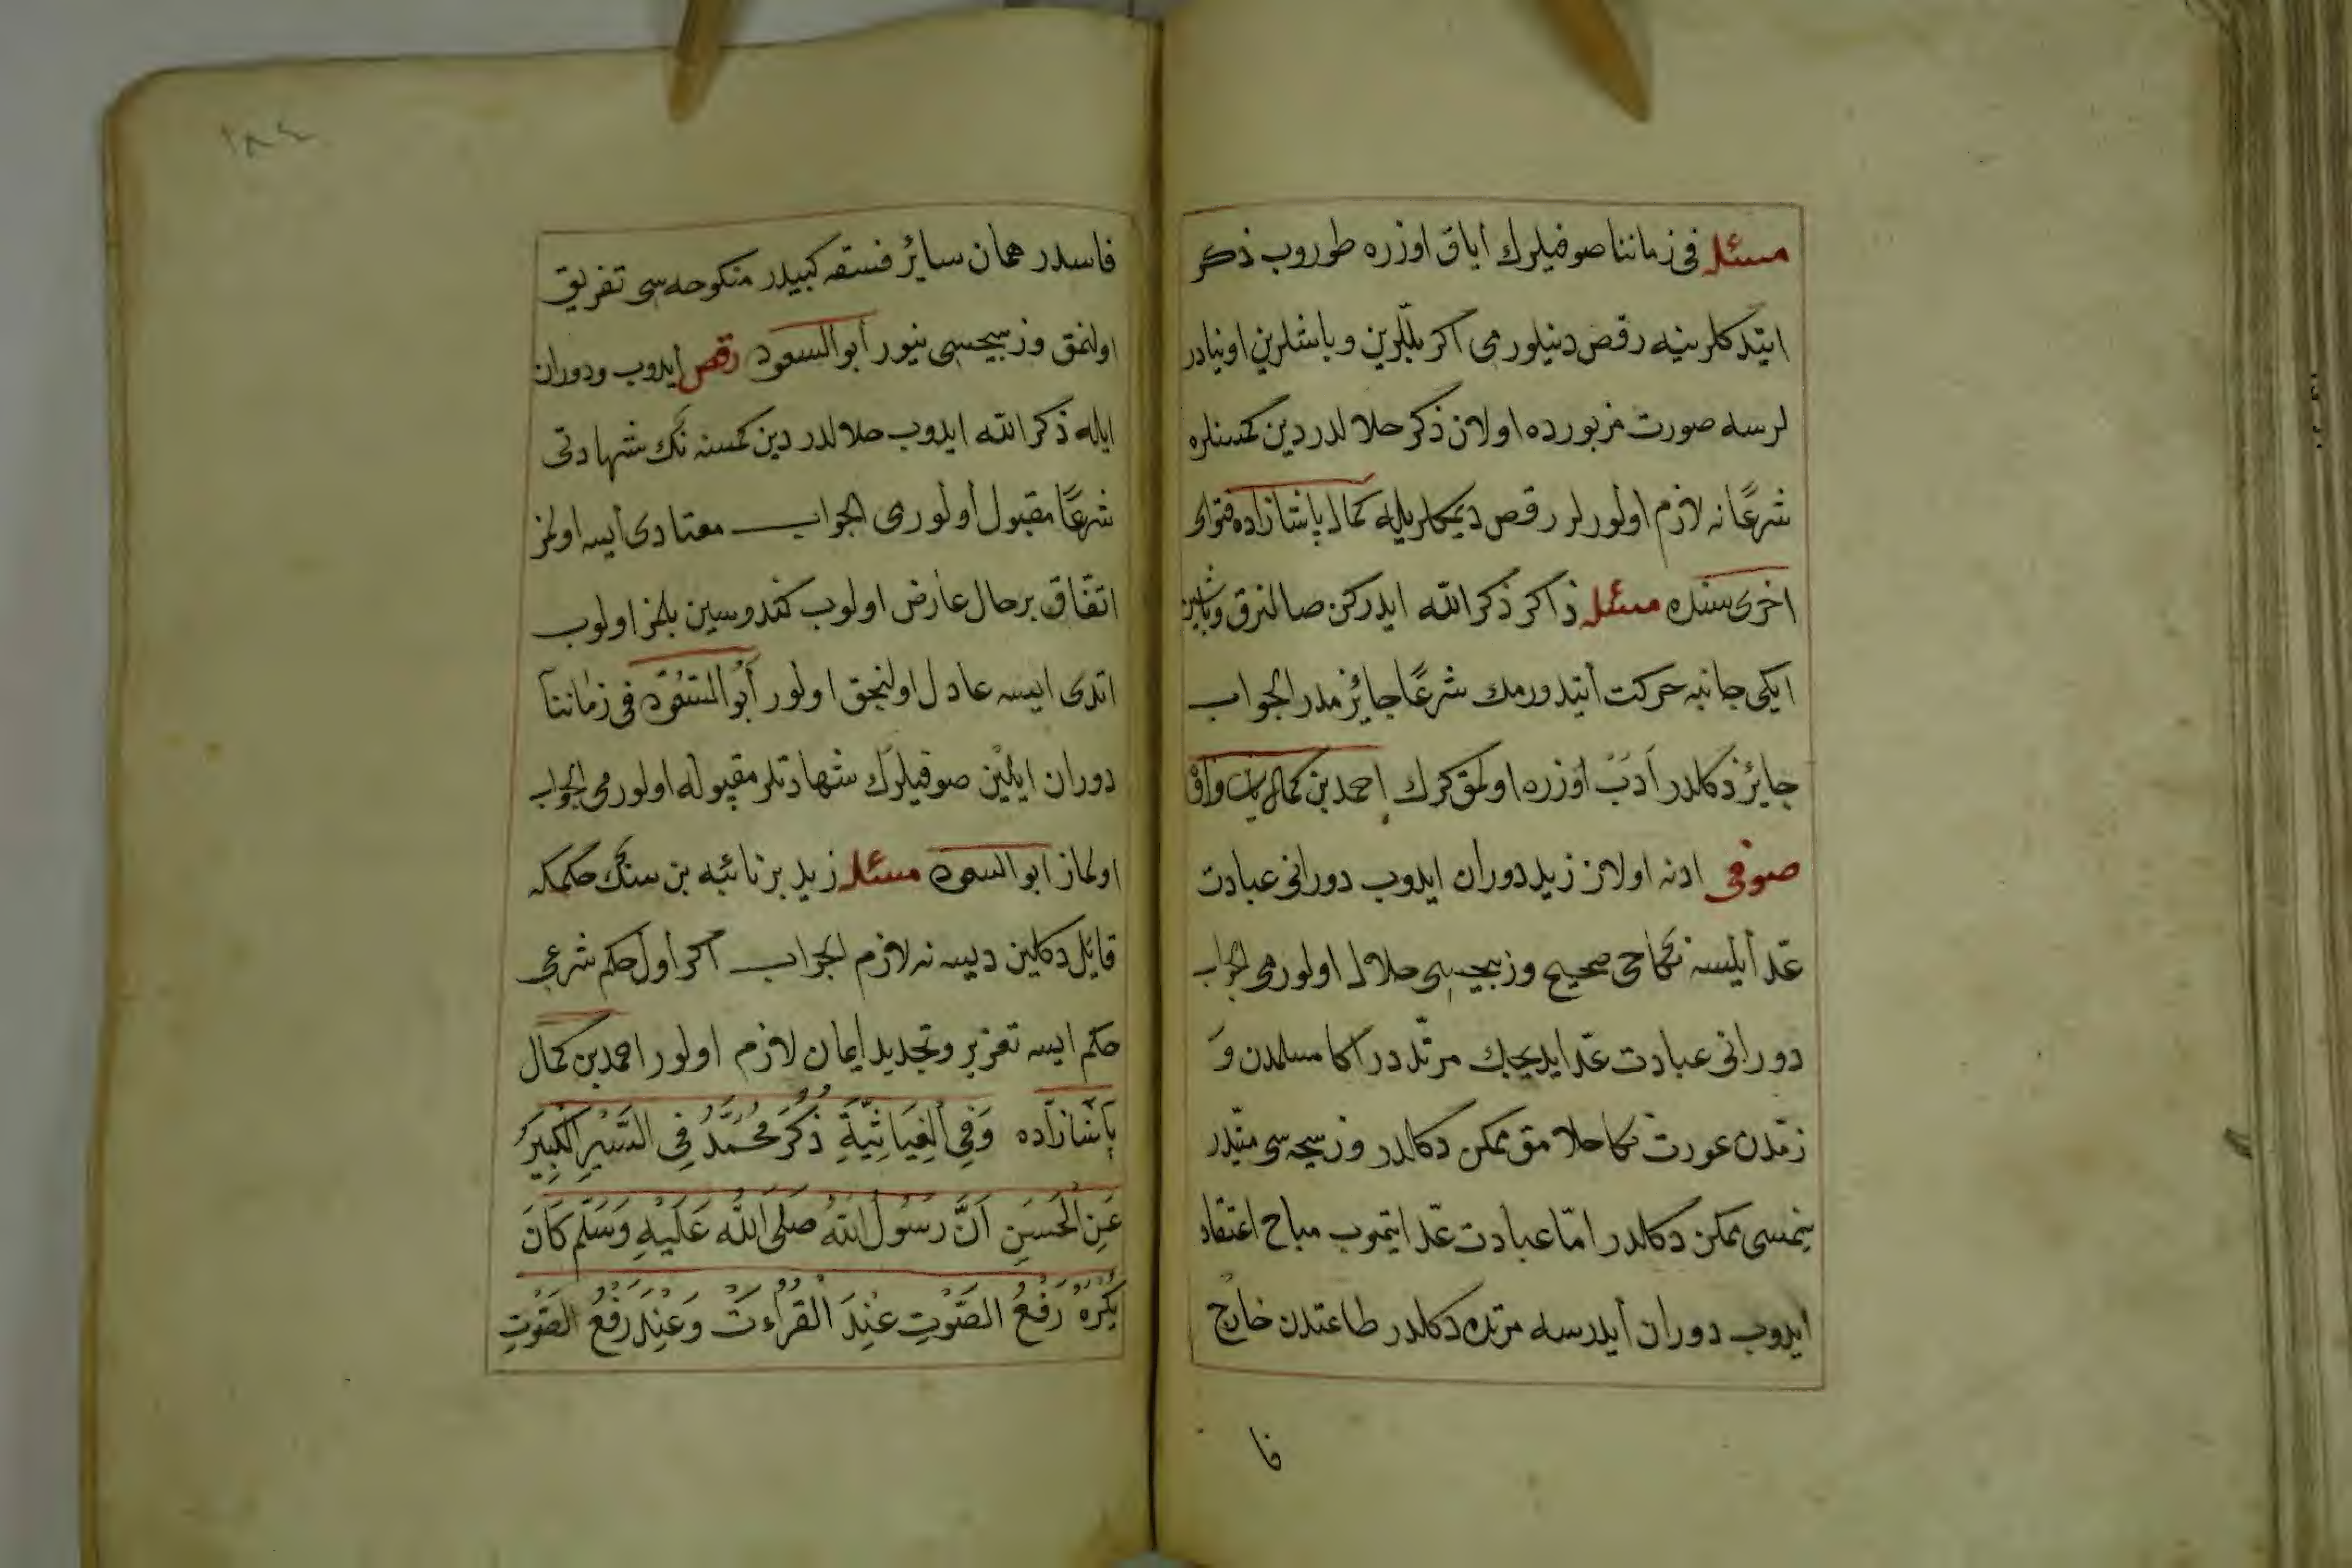 مسئله فى زماننا صوفيلرك اياق اوزره طوروب ذكر
ايتدكلرينه رقص دنيلورمى اكر بللرين وباشلرين اوينادر
لرسه صورت مزبورده اولان ذكر حلالدر دين كمسنلره
شرعًا نه لازم اولورلر رقص ديمكلريله كمال پاشازاده فتواى
اخرىسنده مسئله ذاكر ذكر الله ايدركن صالنرق وباشين
ايكى جانبه حركت ايتدورمك شرعًا جايزمدر الجواب
جايز دكلدر ادب اوزره اولمق كرك احمد بن كمال
صوفى ادنه اولان زيد دوران ايدوب دورانى عبادت
عدّ ايلسه نكاحى صحيح وزبيحسى حلال اولورمى الجواب
دورانى عبادت عدّ ايديجك مرتد در اكا مسلمدن و
زمّدن عورت نكاحلامق ممكن دكلدر وزبيحهسى ميتدر
ينمسى ممكن دكلدر امّا عبادت عدّ ايتميوب مباح اعتقاد
ايدوب دوران ايدرسه مرتد دكلدر طاعتدن خارج
فا
١٨٤
فاسدر همان سائر فسقه كبيدر منكوحهسى تفريق
اولنمق وزبيحسى ينور ابو السعود رقص ايدوب ودوران
ايله ذكر الله ايدوب حلالدر دين كمسنه نك شهادتى
شرعًا مقبول اولورمى الجواب معتادى ايسه اولمز
اتفاق برحال عارض اولوب كندوسين بلمز اولوب
اتدى ايسه عادل اولنجق اولور أبو السعود فى زماننا
دوران ايلين صوفيلرك شهادتلر مقبوله اولورمى الجواب
اولماز ابو السعود مسئله زيد بر نائبه بن سنك حكمكه
قايل دكلين ديسه نه لازم الجواب اكر اول حكم شرعى
حكم ايسه تعزير وتجديد ايمان لازم اولور احمد بن كمال
پاشازاده وَفِى الغِيَاثِيَّةِ ذُكِرَ مُحَمَّدُ فِى السَّيرِ الكَبِيرِ
عَنِ الْحَسَنِ اَنَّ رَسُولَ اللهِ صَلَى اللهُ عَلَيْهِ وَسَلَّم كَانَ
يَكْرَهُ رَفْعُ الصَّوْتِ عِنْدَ الْقُرْاءَتْ وَعِنْدَ رَفْعُ الصَّوْتِ